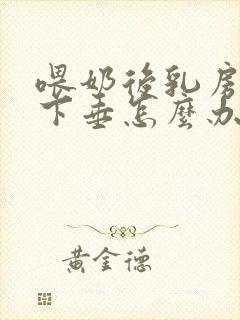 喂奶後乳房
下垂怎麼办
黄金德